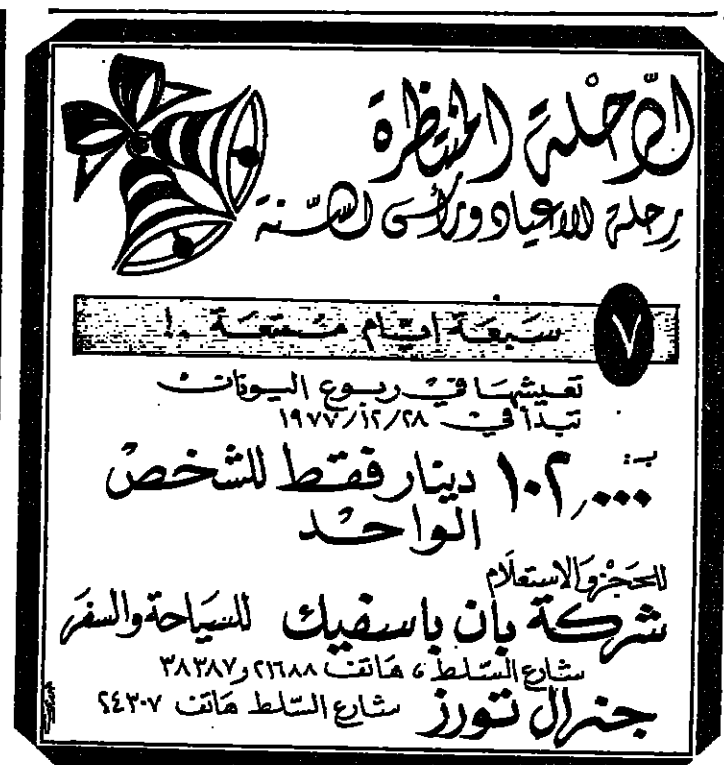 الرحلة المنتظرة
رحلة الاعياد ورأس السنة
٧ سبعة ايام ممتعة ..!
تعيشها في ربوع اليونان
تبدأ في ١٩٧٧/١٢/٢٨
بـ: ١٠٢,٠٠٠ دينار فقط للشخص
الواحد
للحجز والاستعلام
شركة بان باسفيك للسياحة والسفر
شارع السلط ، هاتف ٢١٦٨٨ و ٣٨٣٨٧
جنرال تورز شارع السلط هاتف ٢٤٣٠٧